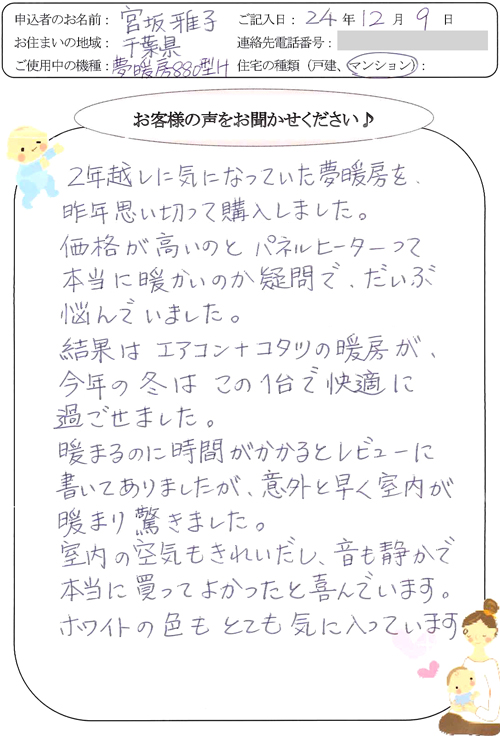 申込者のお名前： 宮坂雅子 ご記入日： 24 年 12 月 9 日
お住まいの地域： 千葉県 連絡先電話番号：
ご使用中の機種： 夢暖房880型H 住宅の種類（戸建、マンション）：
お客様の声をお聞かせください♪
2年越しに気になっていた夢暖房を、
昨年思い切って購入しました。
価格が高いのと パネルヒーターって
本当に暖かいのか疑問で、だいぶ
悩んでいました。
結果は エアコン+コタツの暖房が、
今年の冬は この1台で快適に
過ごせました。
暖まるのに時間がかかるとレビューに
書いてありましたが、意外と早く室内が
暖まり驚きました。
室内の空気もきれいだし、音も静かで
本当に買ってよかったと喜んでいます。
ホワイトの色も とても 気に入っています